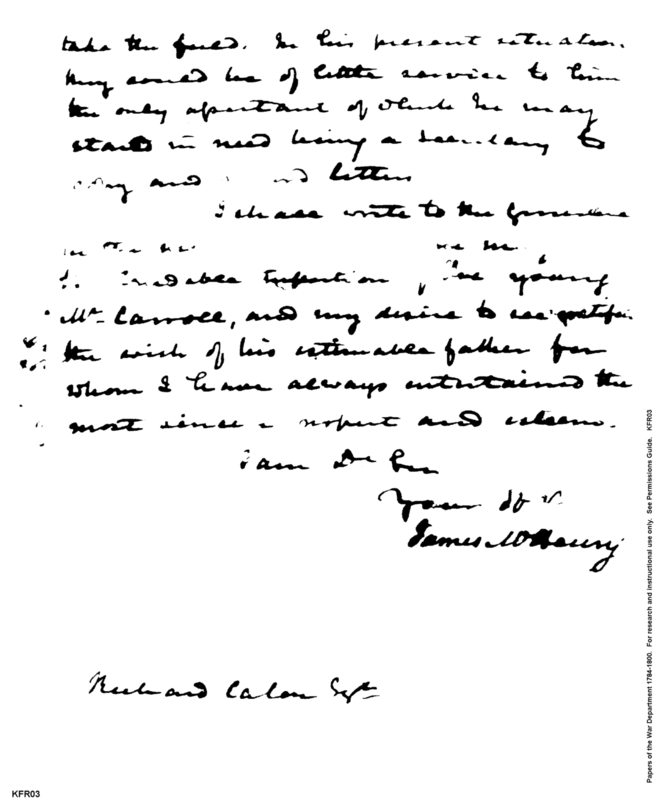 take the field. In his present situation.
they could be of little service to him
the only assistant of which he may
stand in need being a secretary to
copy and letters
I shall write to the General
in the
young
Mr. Carroll, and my desire to see gratified
the wish of his estimable father for
whom I have always entertained the
most sincere respect and esteem.
I am Dr Sir
Your
James McHenry
Richard Caton Esqr
KFR03
Papers of the War Department 1784-1800. For research and instructional use only. See Permissions Guide. KFR03